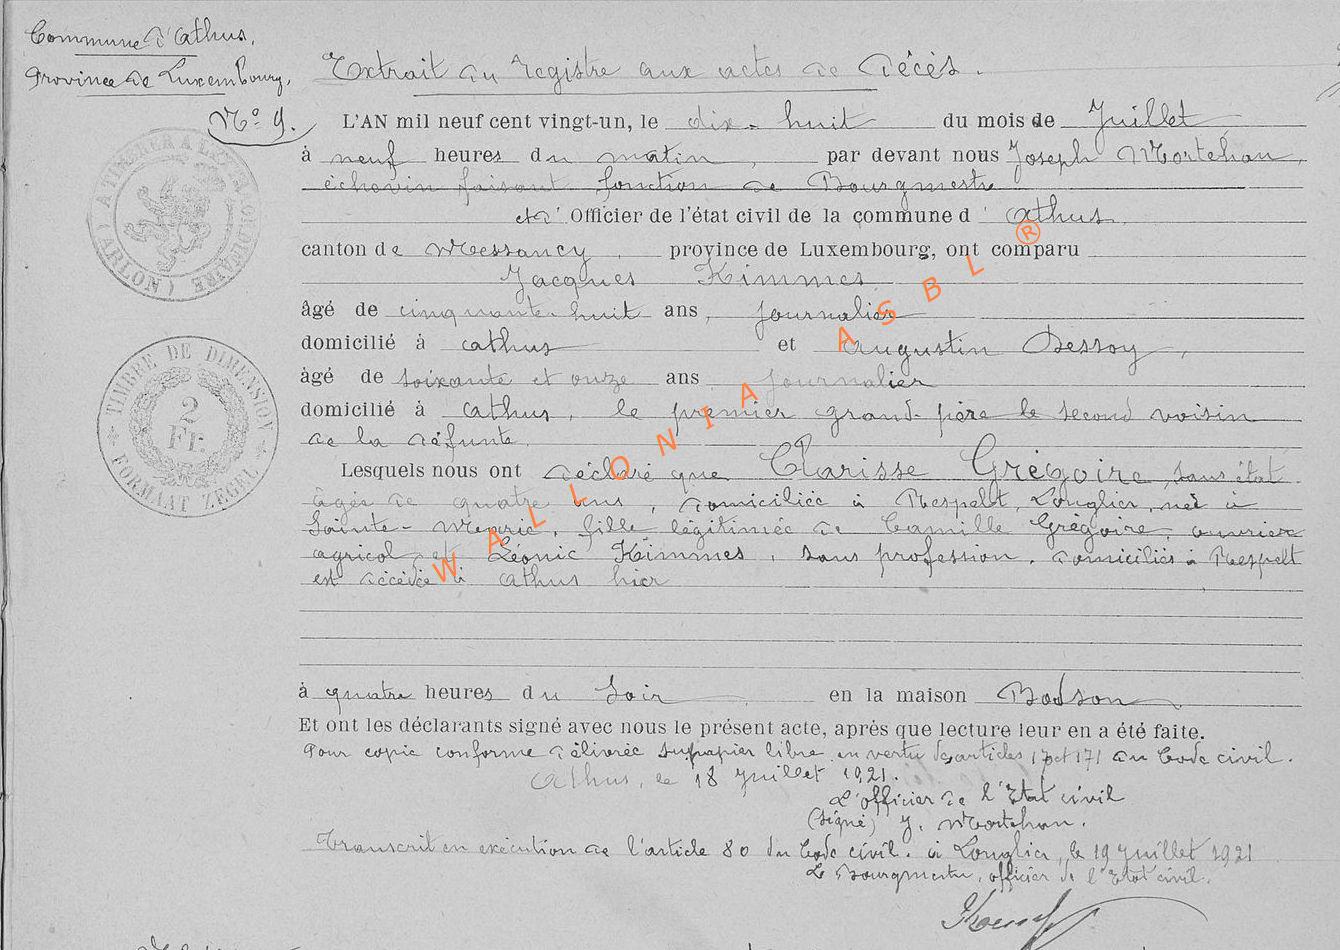 Commune d'Athus.
Province de Luxembourg.
No 9.
Extrait du registre aux actes de décès.
L'AN mil neuf cent vingt-un, le dix-huit du mois de Juillet
à neuf heures du matin, par devant nous Joseph Mortehan,
échevin faisant fonction de Bourgmestre
Officier de l'état civil de la commune d'Athus.
canton de Messancy, province de Luxembourg, ont comparu
Jacques Kimmes
âgé de cinquante-huit ans, journalier
domicilié à Athus et Augustin Dessoy,
âgé de soixante et onze ans journalier
domicilié à Athus, le premier grand-père le second voisin
de la défunte.
Lesquels nous ont déclaré que Clarisse Grégoire, sans état
âgée de quatre ans, domiciliée à Respelt, Longlier, née à
Sainte-Marie, fille légitimée de Camille Grégoire, ouvrier
agricol et Léonie Kimmes, sans profession, domiciliés à Respelt
est décédée à Athus hier
à quatre heures du soir en la maison Bodson
Et ont les déclarants signé avec nous le présent acte, après que lecture leur en a été faite.
Pour copie conforme délivrée sur papier libre en vertu des articles et 171 du Code civil.
Athus, le 18 Juillet 1921.
L'officier de l'Etat civil
(signé) J. Mortehan.
Transcrit en exécution de l'article 80 du Code civil. à Longlier, le 19 Juillet 1921
Le Bourgmestre, officier de l'Etat civil.
A TIMBRER A L'EXTRAORDINAIRE (ARLON)
TIMBRE DE DIMENSION
2
FR.
FORMAAT ZEGEL
WALLONIA ASBL ®